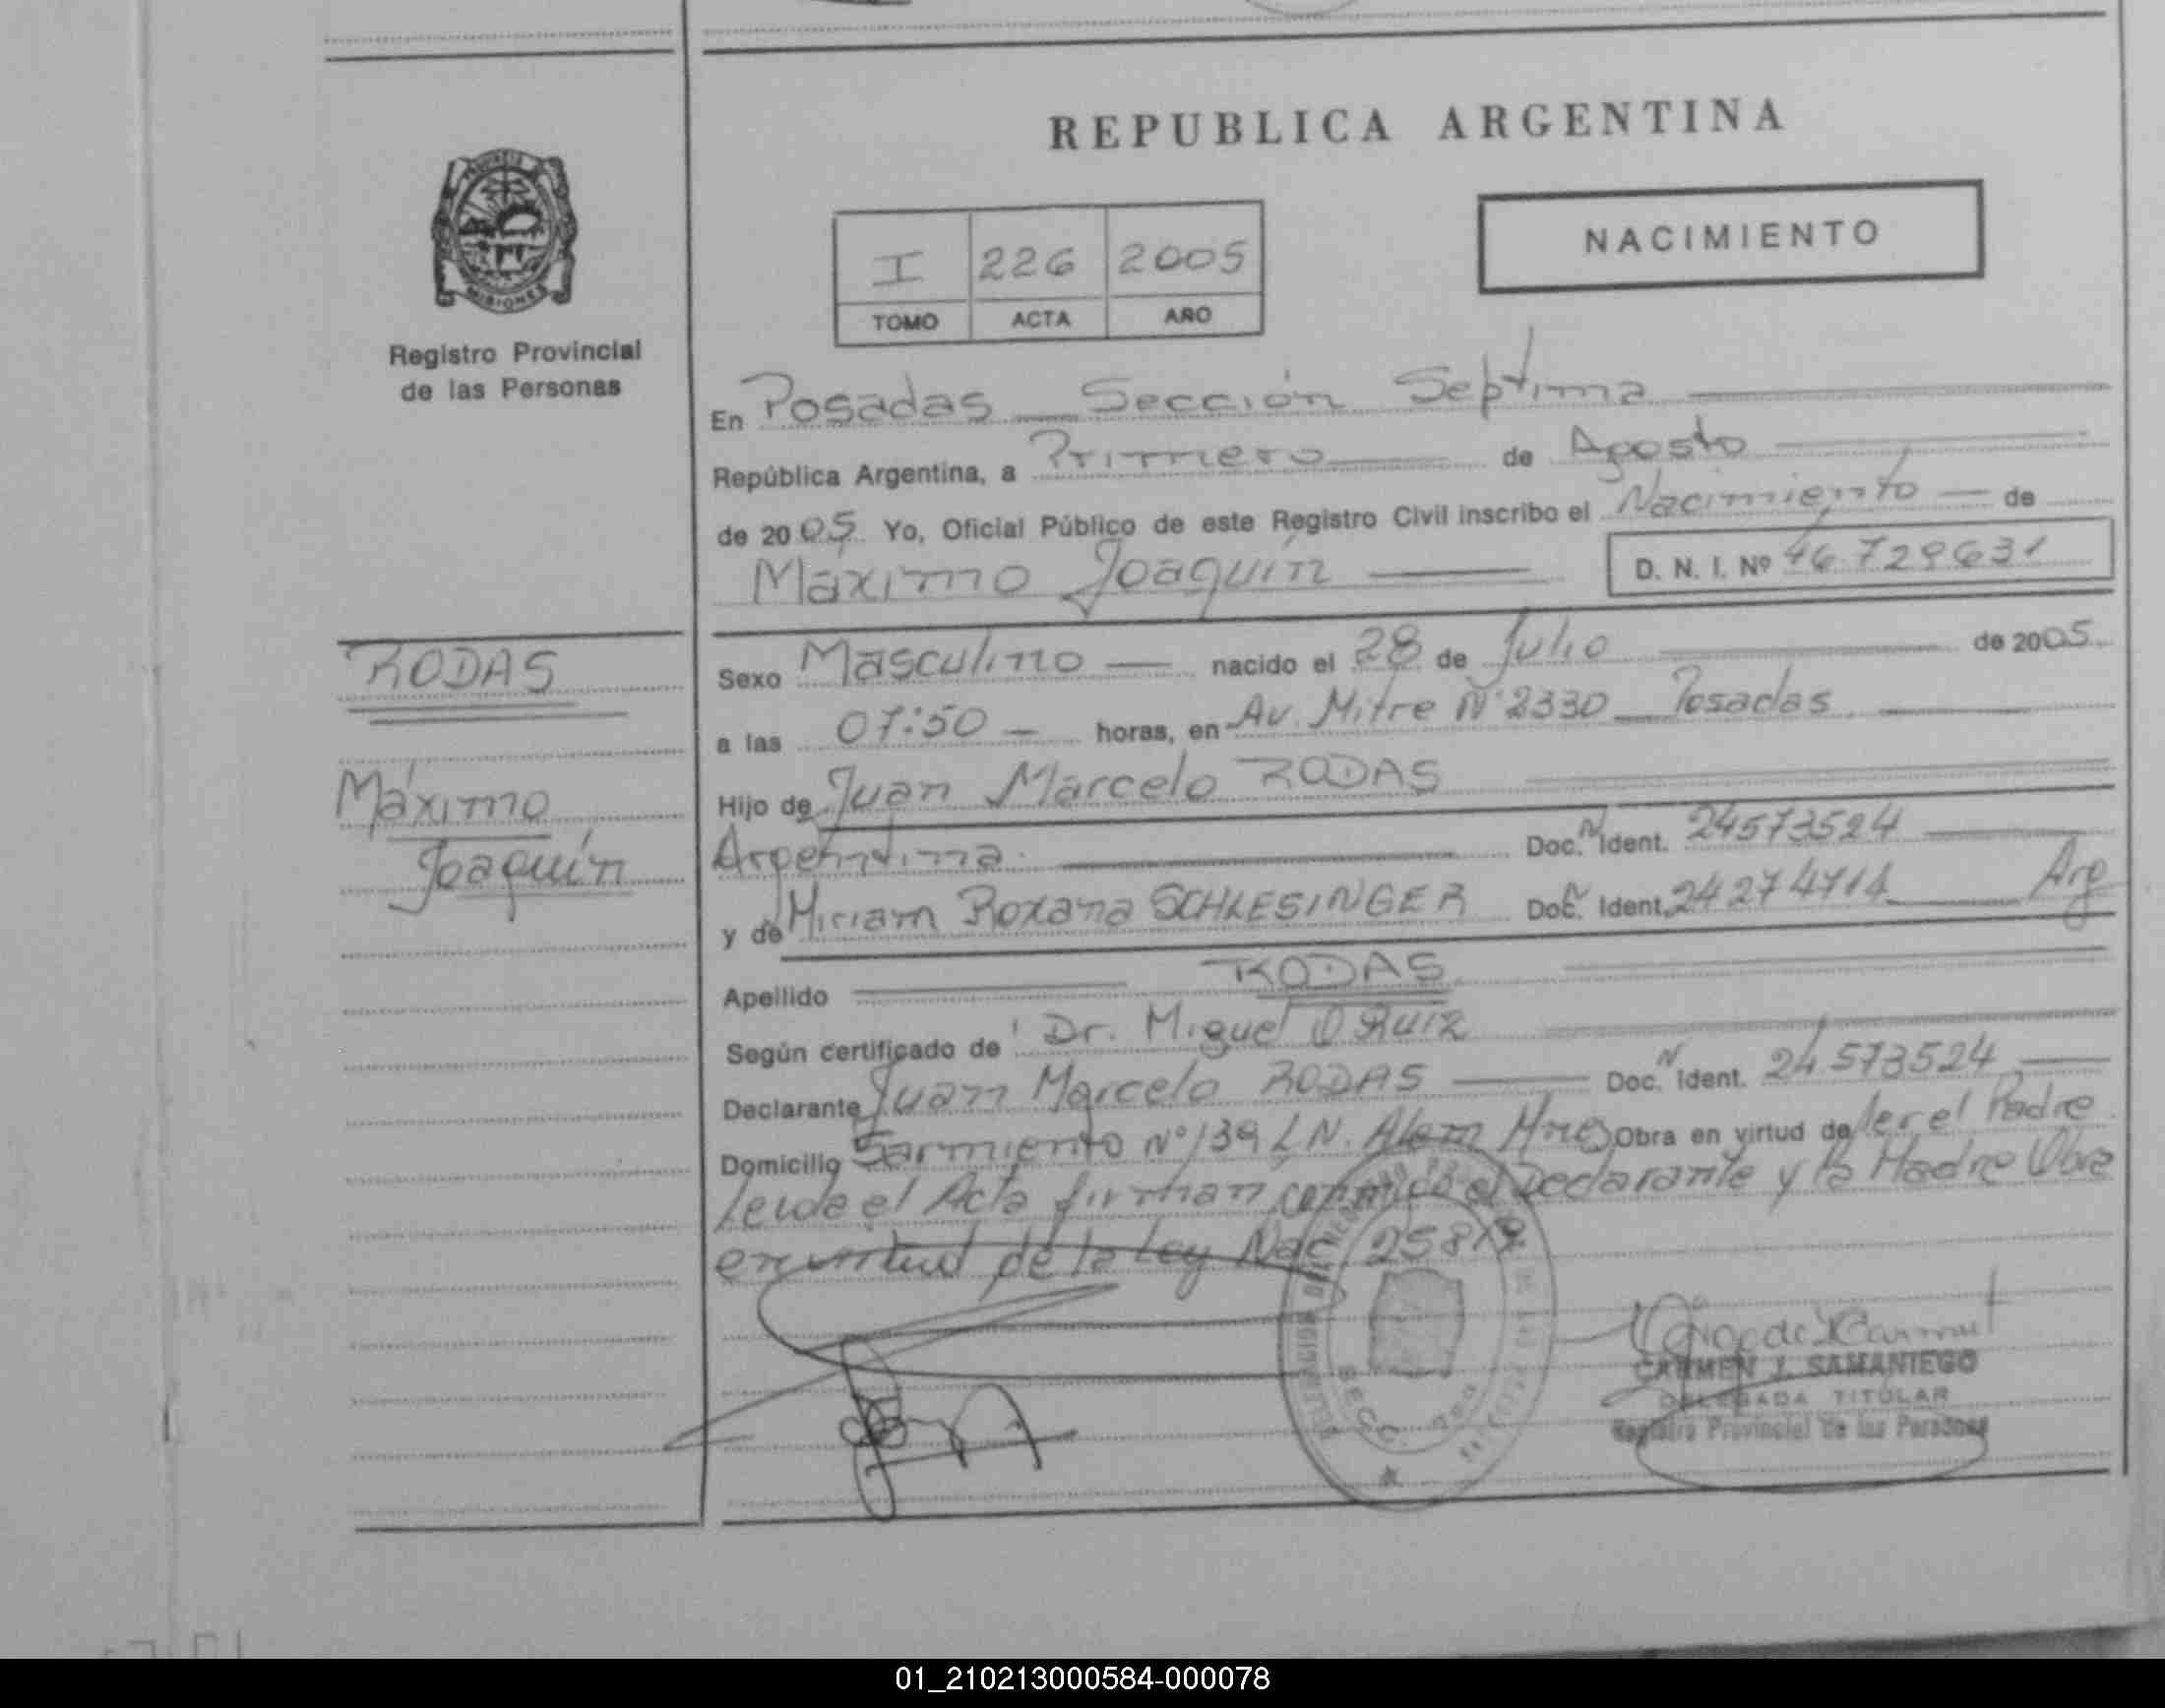 REPUBLICA ARGENTINA
NACIMIENTO
I 226 2005
TOMO ACTA AÑO
MISIONES
Registro Provincial
de las Personas
En Posadas Sección Septima
República Argentina, a Primero de Agosto
de 2005 Yo, Oficial Público de este Registro Civil inscribo el Nacimiento de
Máximo Joaquín D. N. I. Nº 46.729631
RODAS
Máximo
Joaquín
Sexo Masculino nacido el 28 de Julio de 2005
a las 07:50 horas, en Av. Mitre Nº 2330 Posadas
Hijo de Juan Marcelo RODAS
Argentina Doc. N Ident. 24573524
y de Miriam Roxana SCHLESINGER Doc. N Ident. 24274714 Arg
Apellido RODAS
Según certificado de Dr. Miguel O RUIZ
Declarante Juan Marcelo RODAS Doc. N Ident. 24.573524
Domicilio Sarmiento Nº 139 L N. Alem Mnes Obra en virtud de ser el Padre
Leída el Acta firman conmigo el Declarante y la Madre Obra
en virtud de la Ley Nac
SECC.
CARMEN J. SAMANIEGO
DELEGADA TITULAR
Registro Provincial de las Personas
01_210213000584-000078